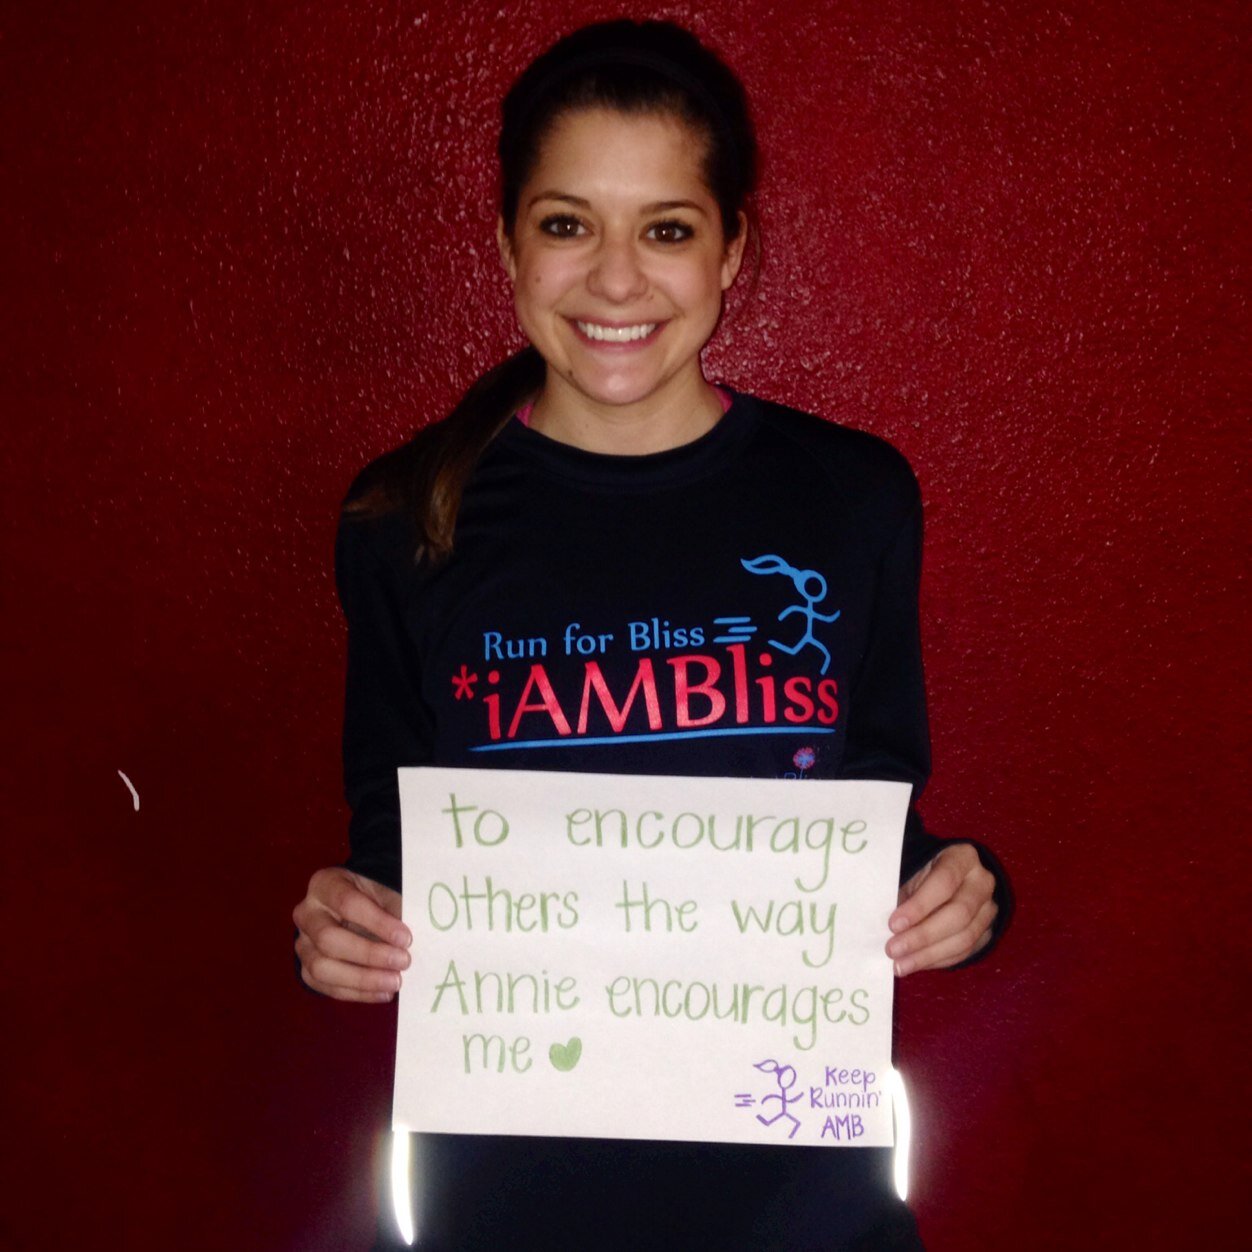 Run for Bliss
*iAMBliss
to encourage
others the way
Annie encourages
me
Keep
Runnin'
AMB